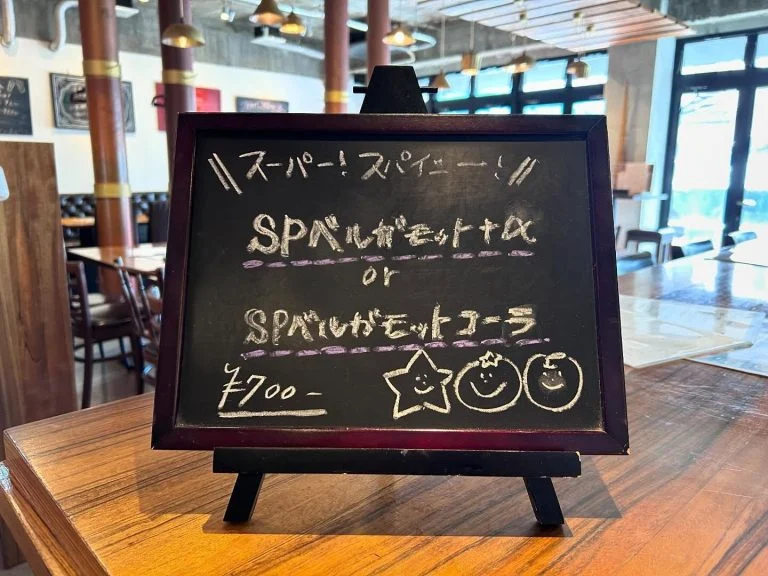 \\ スーパー! スパイシー! //
SPベルガモット+α
or
SPベルガモットコーラ
¥700-